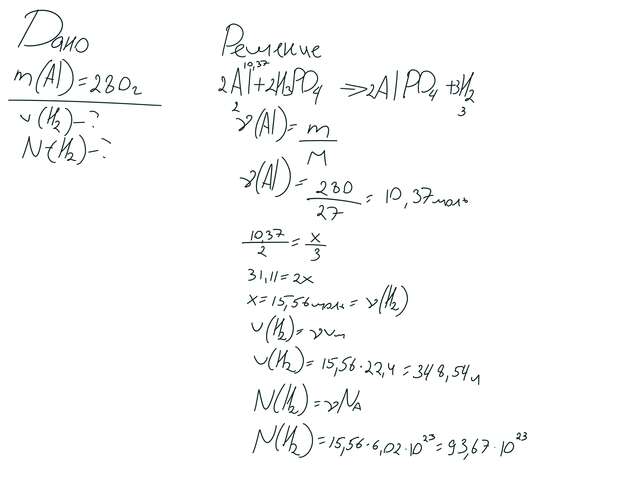 Дано
m(Al)=280г
V(H₂)-?
N(H₂)-?
Решение
10,37
2Al+2H₃PO₄ ⇒ 2AlPO₄+3H₂
2 3
ν(Al)= m/M
ν(Al)= 280/27 = 10,37моль
10,37/2 = x/3
31,11=2x
x=15,56моль=ν(H₂)
V(H₂)=νVm
V(H₂)=15,56·22,4=348,54л
N(H₂)=νNA
N(H₂)=15,56·6,02·10²³=93,67·10²³